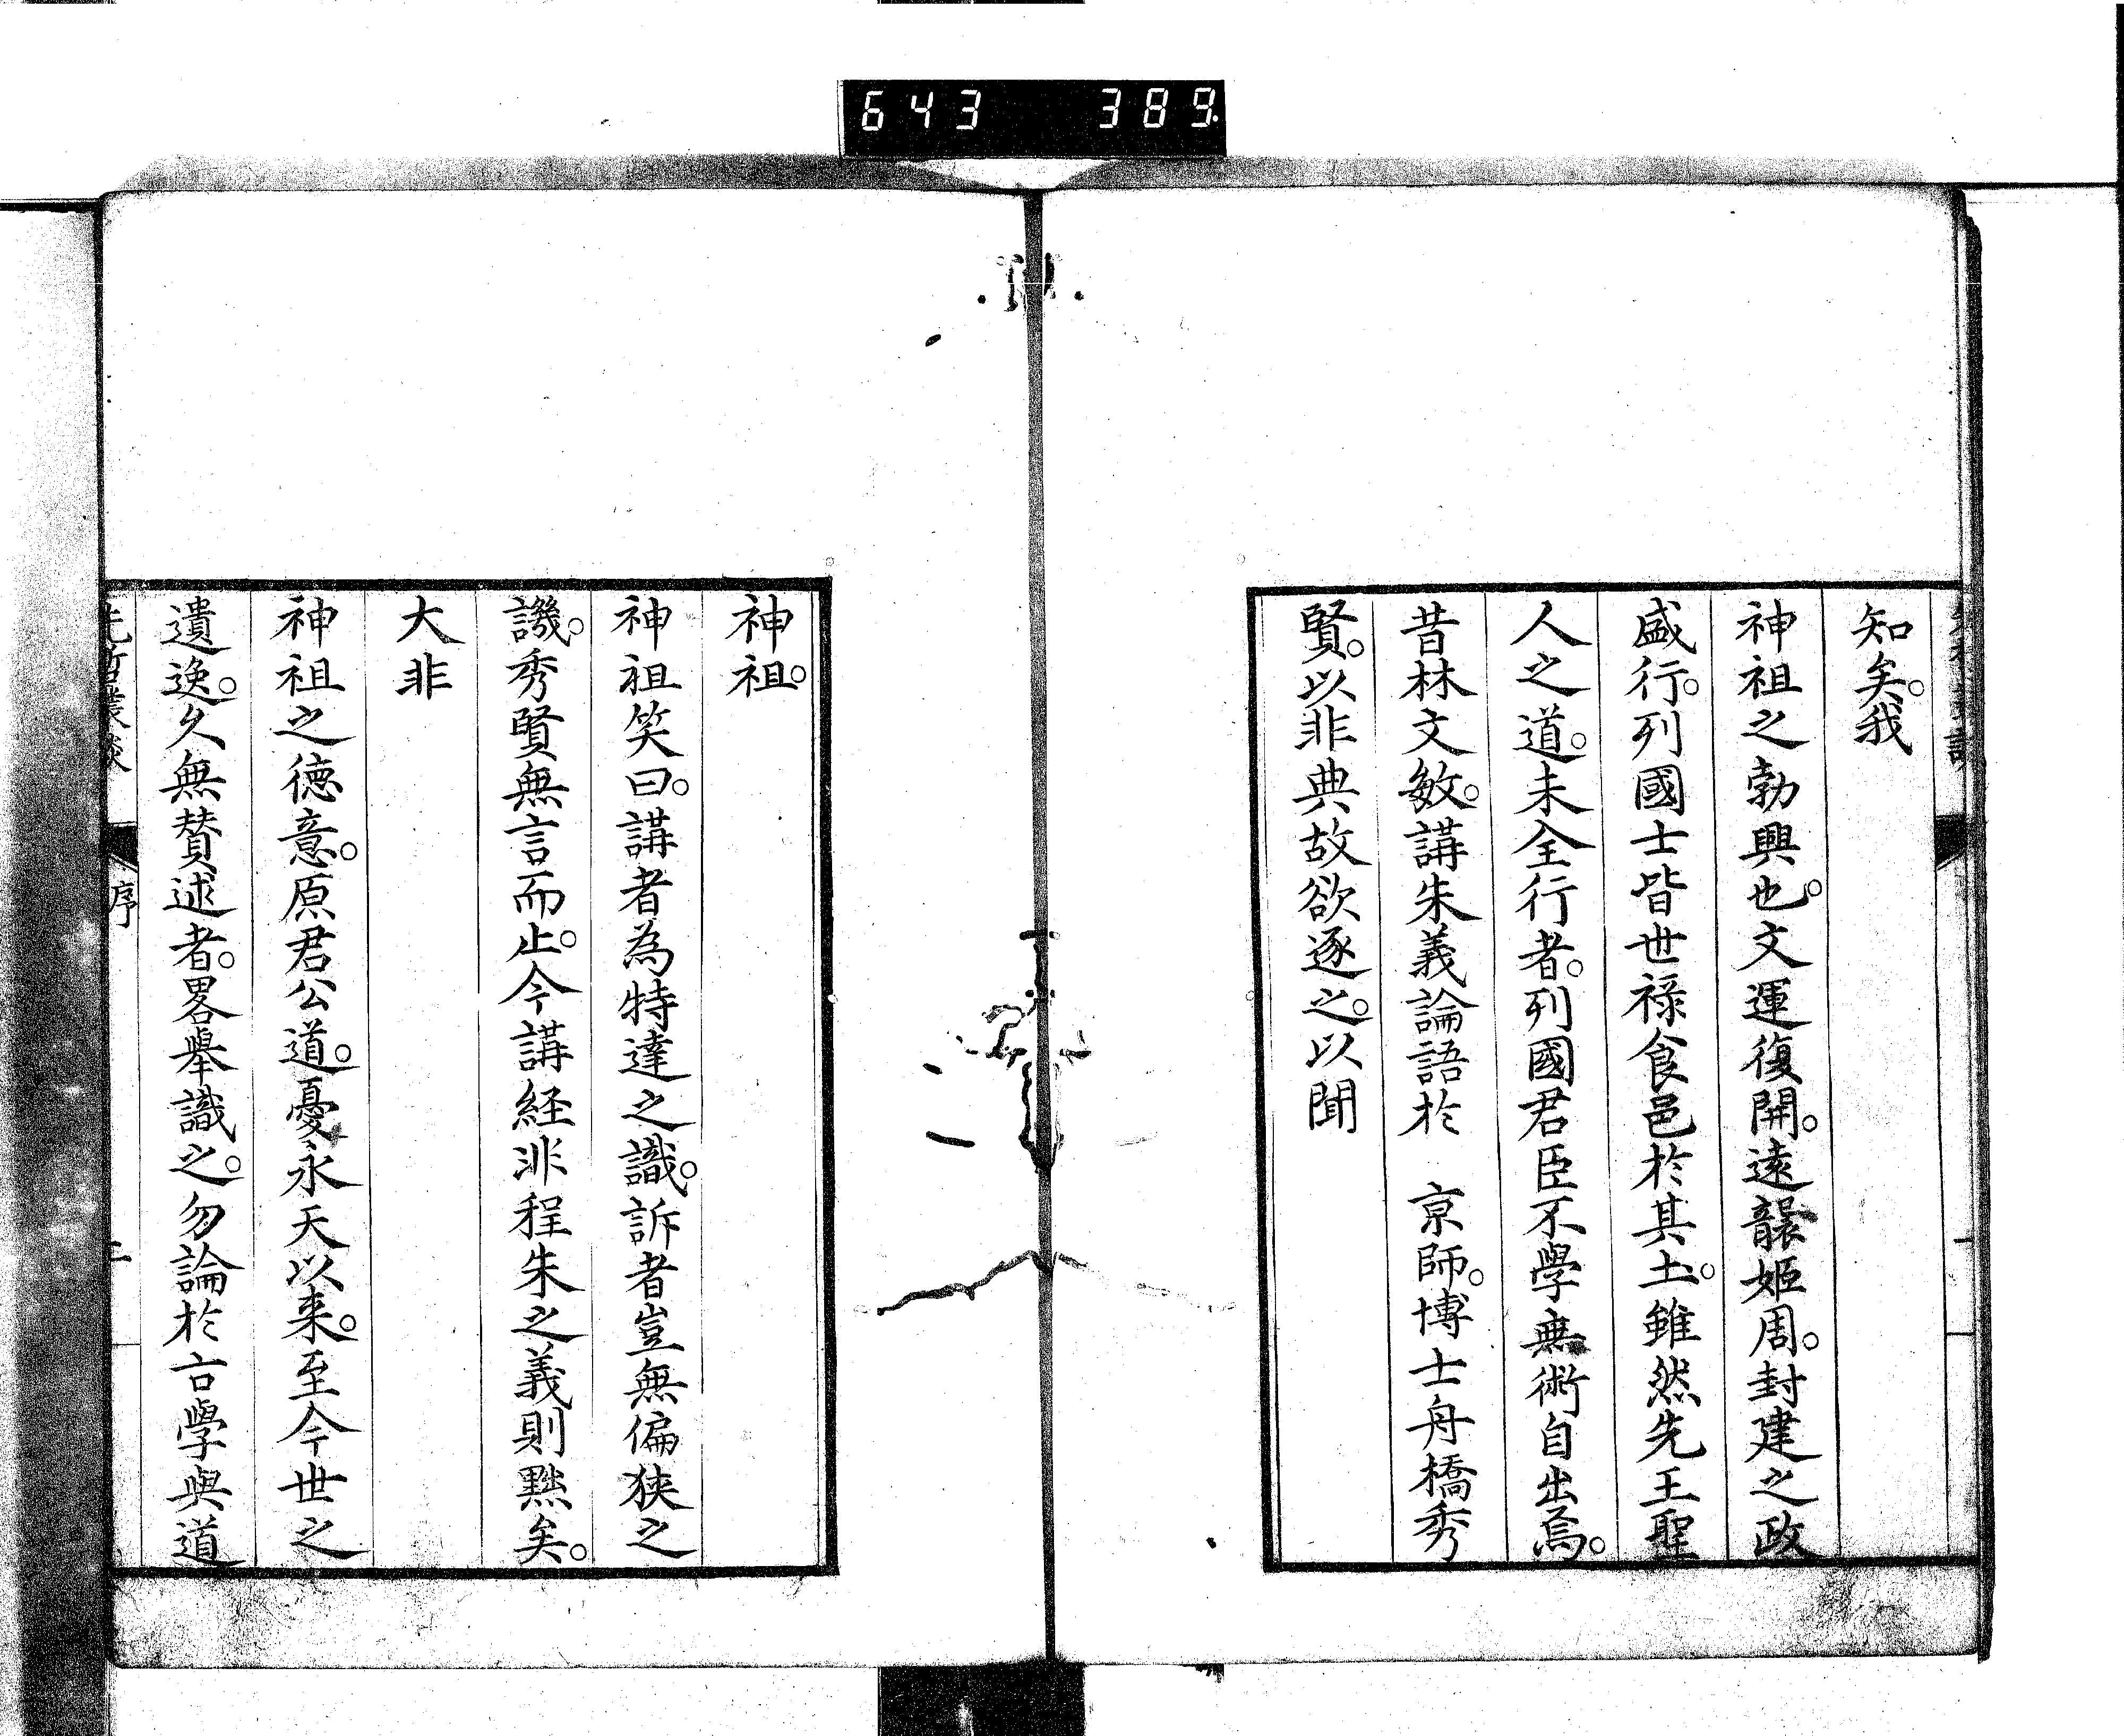 643 389.
知矣。我
神祖之勃興也。文運復開。遠襲姬周。封建之政
盛行。列國士皆世祿食邑於其土。雖然先王聖
人之道。未全行者。列國君臣不學無術自出焉。
昔林文敏。講朱義論語於 京師。博士舟橋秀
賢。以非典故欲逐之。以聞
神祖。
神祖笑曰。講者為特達之識。訴者豈無偏狹之
譏。秀賢無言而止。今講経非程朱之義則黙矣。
大非
神祖之徳意。原君公道。憂永天以来。至今世之
遺逸。久無賛述者。畧舉識之。勿論於言學與道
先哲叢談 序